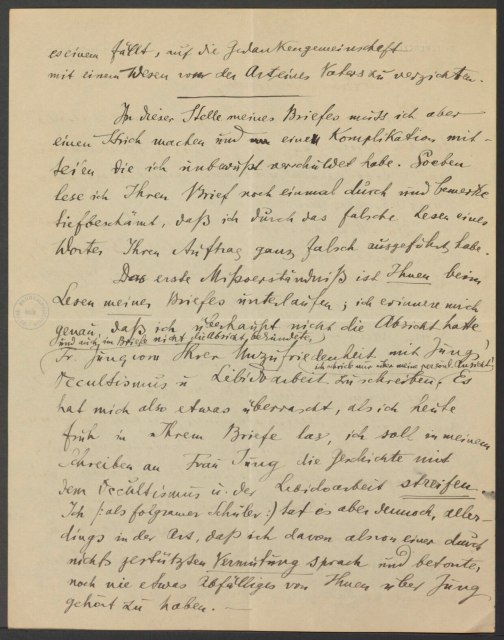 es einem fällt, auf die Gedankengemeinschaft
mit einem Wesen von der Art eines Vaters zu verzichten.
In dieser Stelle meines Briefes muss ich aber
einen Strich machen und eine Komplikation mit-
teilen die ich unbewußt verschuldet habe. Soeben
lese ich Ihren Brief noch einmal durch und bemerke
tiefbeschämt, daß ich durch das falsche Lesen eines
Wortes Ihren Auftrag ganz falsch ausgeführt habe.
Das erste Missverständniß ist Ihnen beim
Lesen meines Briefes unterlaufen; ich erinnere mich
genau, daß ich überhaupt nicht die Absicht hatte
und auch im Briefe nicht die Absicht bekundete,
Fr. Jung von Ihrer Unzufriedenheit mit Jung'
ich schrieb nur über meine persönl. Ansicht
Occultismus u Libidoarbeit zu schreiben. Es
hat mich also etwas überrascht, als ich heute
früh in Ihrem Briefe las, ich soll in meinem
Schreiben an Frau Jung die Geschichte mit
dem Occultismus u. der Libidoarbeit streifen.
Ich /: als folgsamer Schüler :/ tat es aber dennoch, aller-
dings in der Art, daß ich davon als von einer durch
nichts gestützten Vermutung sprach und betonte,
noch nie etwas Abfälliges von Ihnen über Jung
gehört zu haben. —